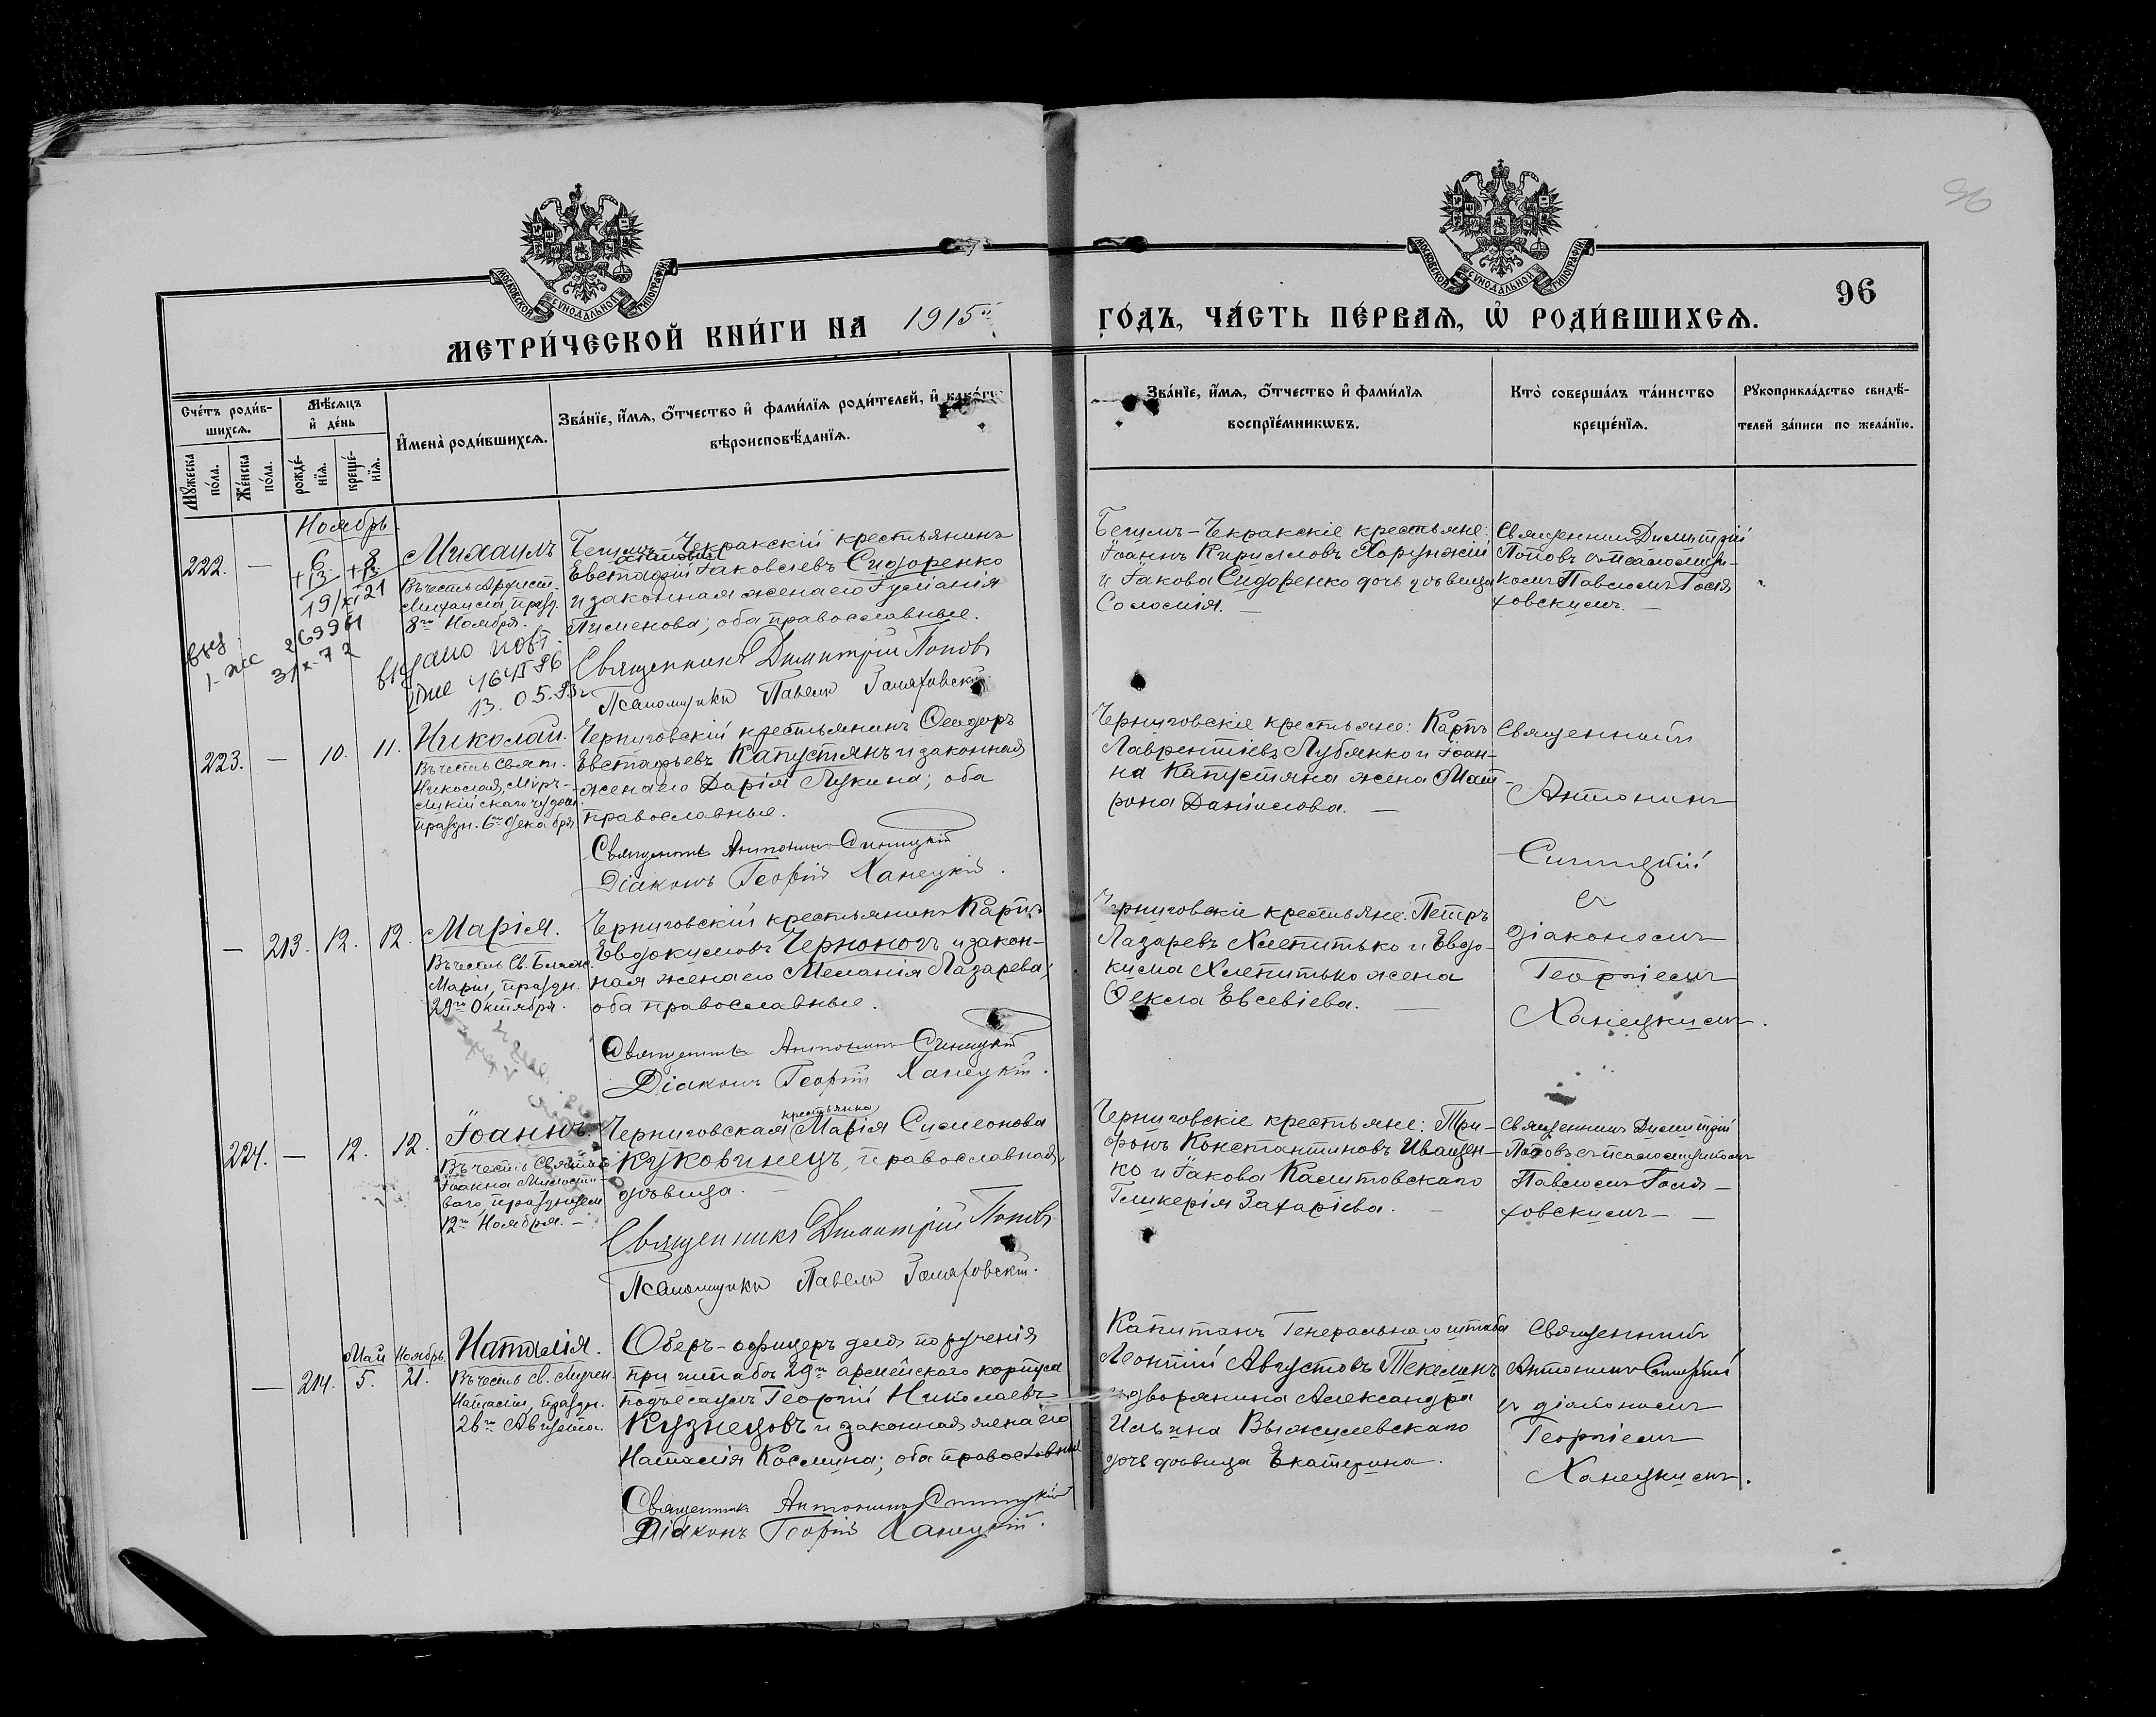 96
МОСКОВСКОЙ СУНОДАЛЬНОЙ ТИПОГРАФІИ
МОСКОВСКОЙ СУНОДАЛЬНОЙ ТИПОГРАФІИ
96
МЕТРИ́ЧЕСКОЙ КНИ́ГИ НА 1915й
ГО́ДЪ, ЧА́СТЬ ПЕ́РВАѦ, Ѡ҆ РОДИ́ВШИХСѦ.
Сче́тъ роди́в-
шихсѧ.
Мѣ́сѧцъ
и҆ де́нь
И҆мена̀ роди́вшихсѧ.
Зва́нїе, и҆́мѧ, ѻ҆́тчество и҆ фами́лїѧ роди́телей, и҆ како́гѡ
вѣроисповѣ́данїѧ.
Мꙋ́жеска
по́ла.
Же́нска
по́ла.
рожде́-
нїѧ.
креще́-
нїѧ.
Зва́нїе, и҆́мѧ, ѻ҆́тчество и҆ фами́лїѧ
воспрїе́мникѡвъ.
Кто̀ соверша́лъ та́инство
креще́нїѧ.
Рꙋкоприкла́дство свидѣ́-
телей за́писи по жела́нїю.
Ноябрь.
222. — 6. 8
+13 +13
19/XI 21
Михаилъ
Въ честь Архист.
Михаила, празд.
8го Ноября.
Бегимъ-Чекракскій крестьянинъ
Евстафій Іаковлевъ Сидоренко
и законная жена его Іуліанія
Пименова; оба православные.
Священникъ Димитрій Поповъ
Псаломщикъ Павелъ Голяховскій
Бегимъ-Чекракскіе крестьяне:
Іоаннъ Кирилловъ Хорунжій
и Іакова Сидоренко дочь дѣвица
Соломія. —
Священникъ Димитрій
Поповъ съ псаломщи-
комъ Павломъ Голя-
ховскимъ. —
выдано повт.
13.05.83
223. — 10. 11.
Николай.
Въ честь Свят.
Николая, Мѵръ-
ликійскаго чудотв.
праздн. 6го Декабря
Черниговскій крестьянинъ Ѳеодоръ
Евстафьевъ Капустянъ и законная
жена его Дарія Лукина; оба
православные.
Священникъ Антонинъ Синицкій
Діаконъ Георгій Ханецкій.
Черниговскіе крестьяне: Карпъ
Лаврентіевъ Лубянко и Іоан-
на Капустяна жена Мат-
рона Даніилова. —
Священникъ
Антонинъ
Синицкій
съ
діакономъ
Георгіемъ
Ханецкимъ.
— 213. 12. 12.
Марія.
Въ честь Св. Блаж.
Маріи, праздн.
29го Октября.
Черниговскій крестьянинъ Карпъ
Евдокимовъ Черноногъ и закон-
ная жена его Меланія Лазарева;
оба православные.
Священникъ Антонинъ Синицкій
Діаконъ Георгій Ханецкій.
Черниговскіе крестьяне: Петръ
Лазаревъ Хмепитько и Евдо-
кима Хмепитько жена
Ѳекла Евсевіева. —
224. — 12. 12.
Іоаннъ.
Въ честь Святаго
Іоанна Милости-
ваго, празднуем
12го Ноября. —
крестьянка
Черниговская Марія Симеонова
Куковинецъ, православная,
дѣвица. —
Священникъ Димитрій Поповъ
Псаломщикъ Павелъ Голяховскій.
Черниговскіе крестьяне: Три-
фонъ Константиновъ Иващен-
ко и Іакова Калитовскаго
Гликерія Захаріева. —
Священникъ Димитрій
Поповъ съ псаломщикомъ
Павломъ Голя-
ховскимъ — —
Май Ноябрь.
— 214. 5. 21.
Наталія.
Въ честь св. Мучен.
Наталіи, праздн.
26го Августа.
Оберъ-офицеръ для порученія
при штабѣ 29го армейскаго корпуса
подъесаулъ Георгій Николаевъ
Кузнецовъ и законная жена его
Наталія Космина; оба православные
Священникъ Антонинъ Синицкій
Діаконъ Георгій Ханецкій.
Капитанъ Генеральнаго штаба
Леонтій Августовъ Текелинъ
и дворянина Александра
Ильина Выжилевскаго
дочь дѣвица Екатерина.
Священникъ
Антонинъ Синицкій
съ діакономъ
Георгіемъ
Ханецкимъ.